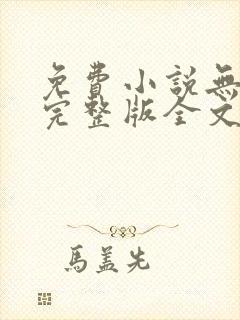 免費小說無
完整版全文
馬盖先